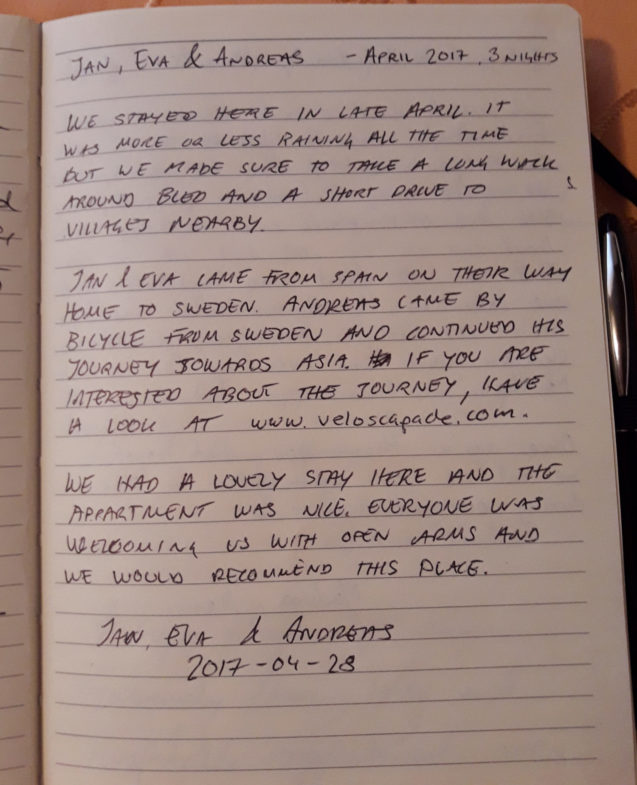 JAN, EVA & ANDREAS - APRIL 2017, 3 NIGHTS
WE STAYED HERE IN LATE APRIL. IT
WAS MORE OR LESS RAINING ALL THE TIME
BUT WE MADE SURE TO TAKE A LONG WALK
AROUND BLED AND A SHORT DRIVE TO
VILLAGES NEARBY.
JAN & EVA CAME FROM SPAIN ON THEIR WAY
HOME TO SWEDEN. ANDREAS CAME BY
BICYCLE FROM SWEDEN AND CONTINUED HIS
JOURNEY TOWARDS ASIA. IF YOU ARE
INTERESTED ABOUT THE JOURNEY, HAVE
A LOOK AT www.veloscapade.com.
WE HAD A LOVELY STAY HERE AND THE
APPARTMENT WAS NICE. EVERYONE WAS
WELCOMING US WITH OPEN ARMS AND
WE WOULD RECOMMEND THIS PLACE.
JAN, EVA & ANDREAS
2017-04-28